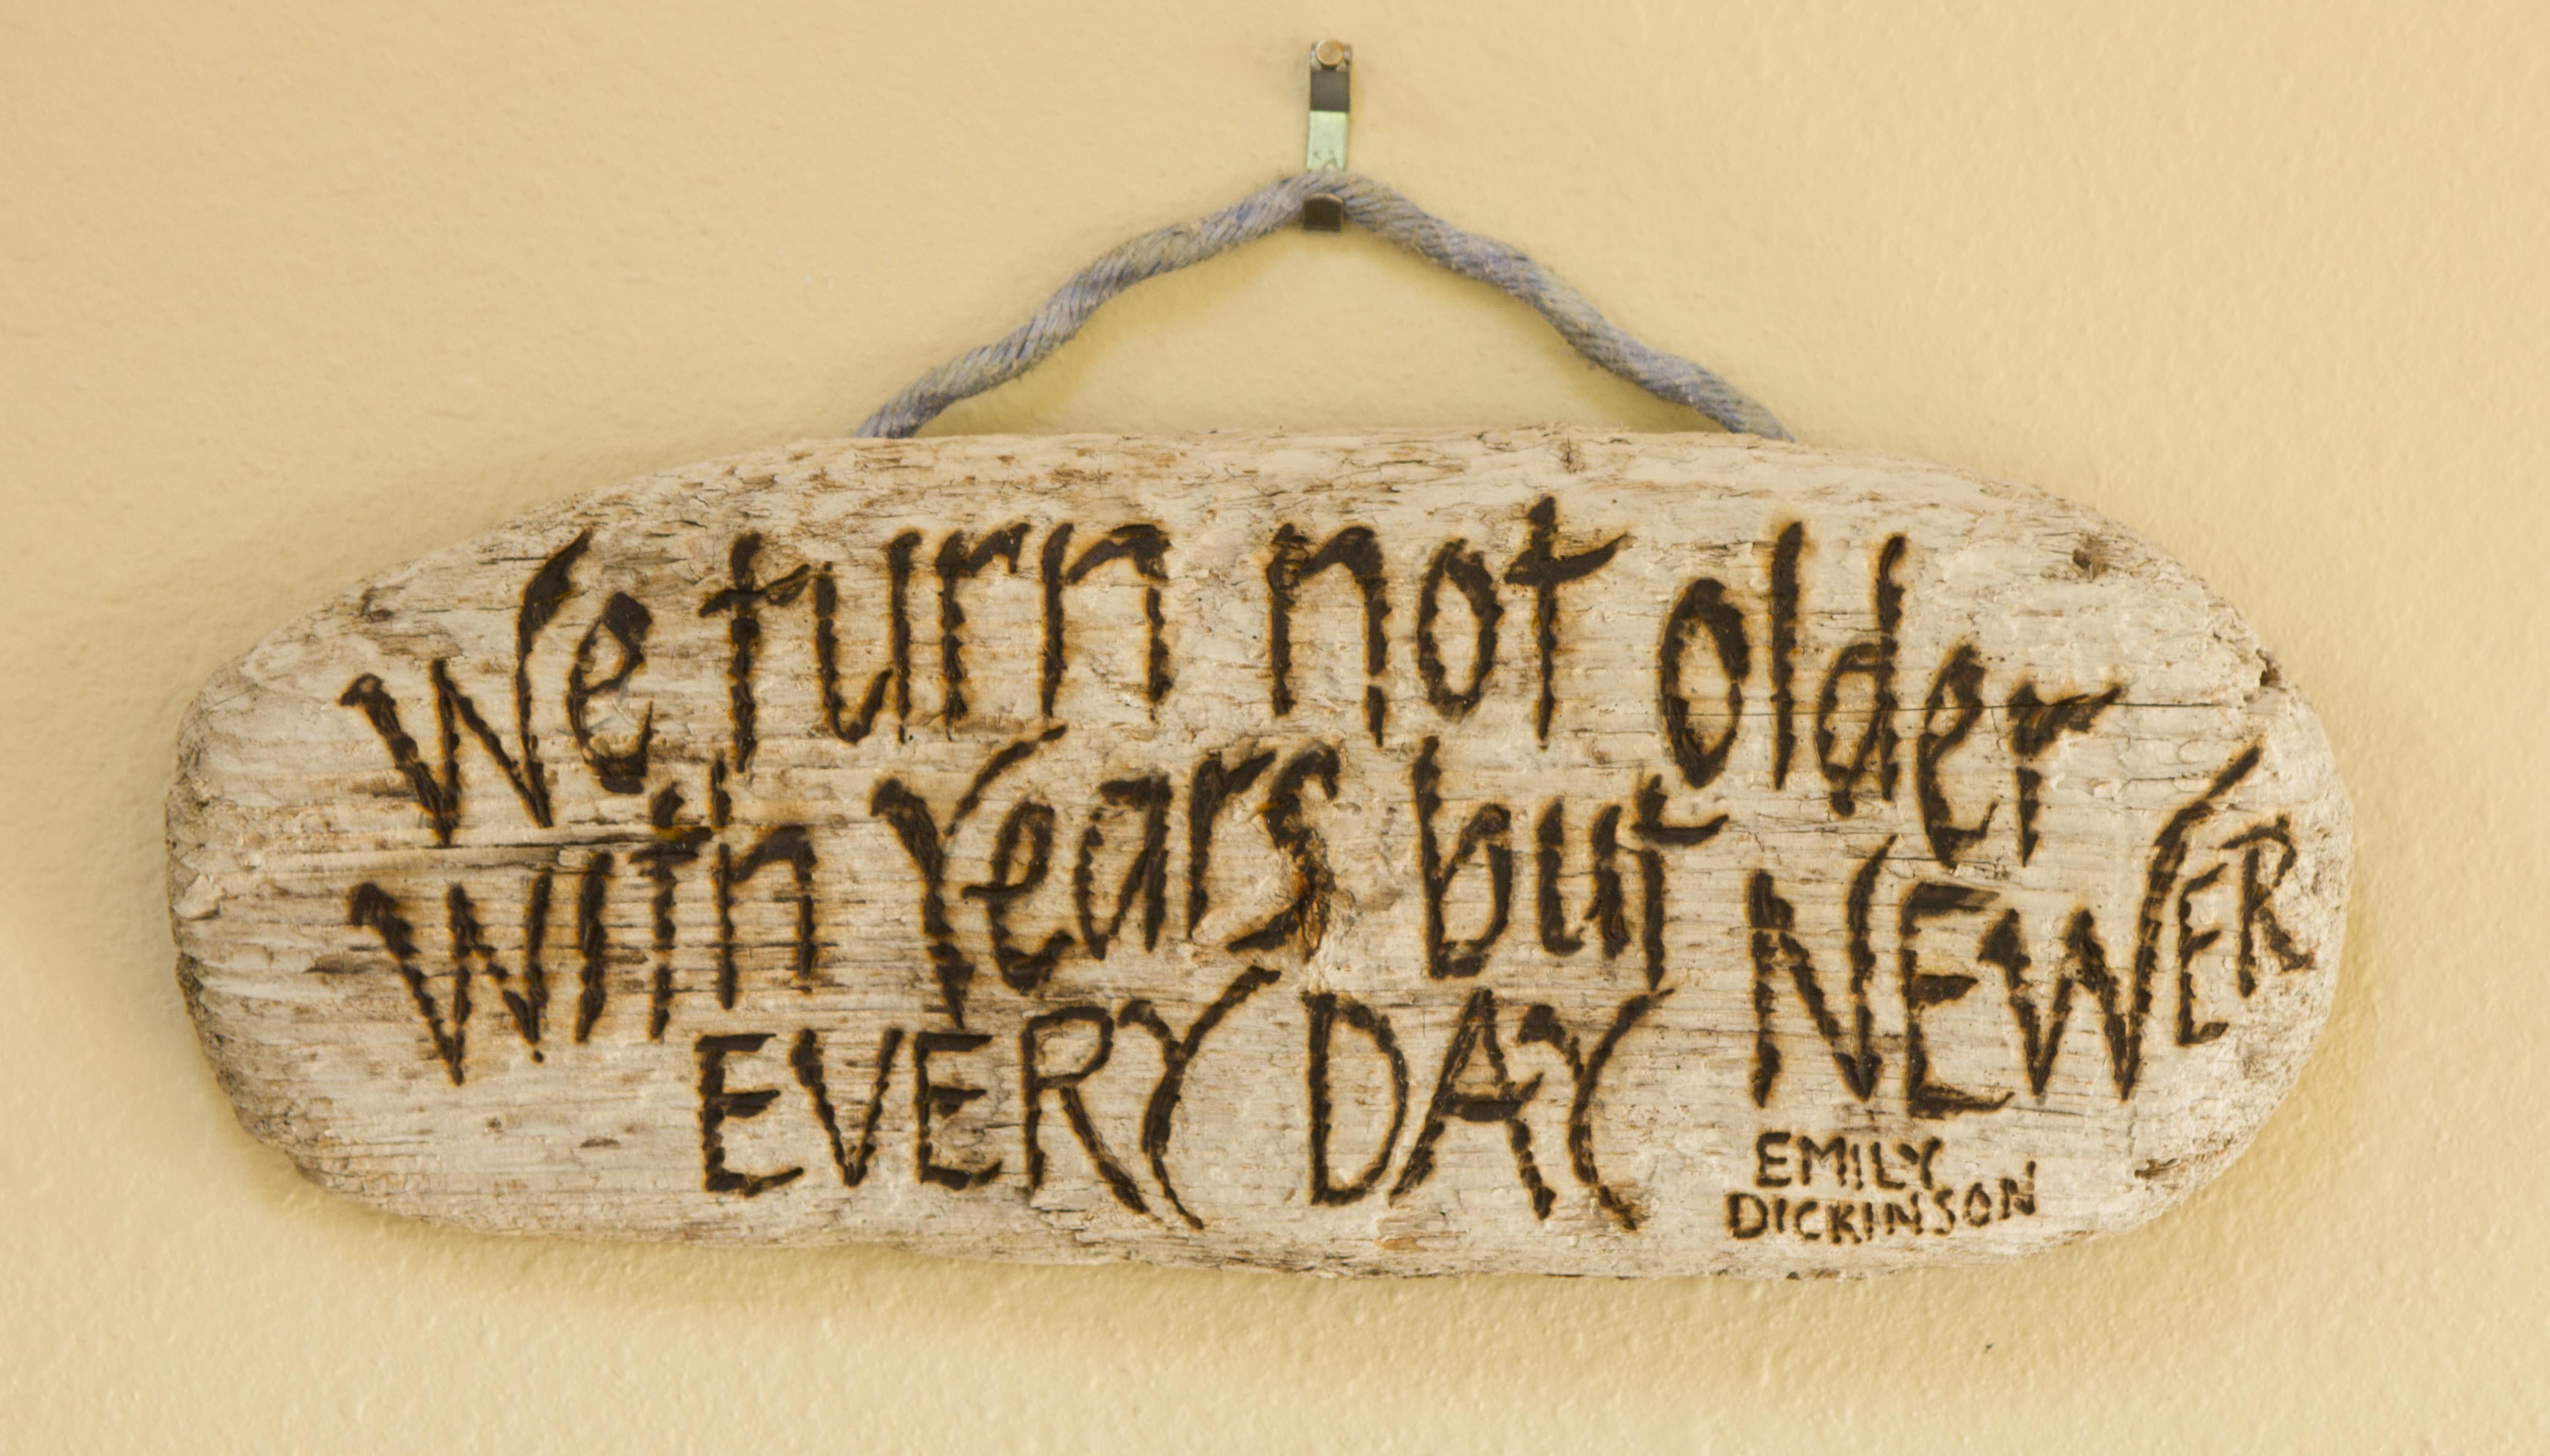 We turn not older
with Years but NEWER
EVERY DAY
EMILY
DICKINSON